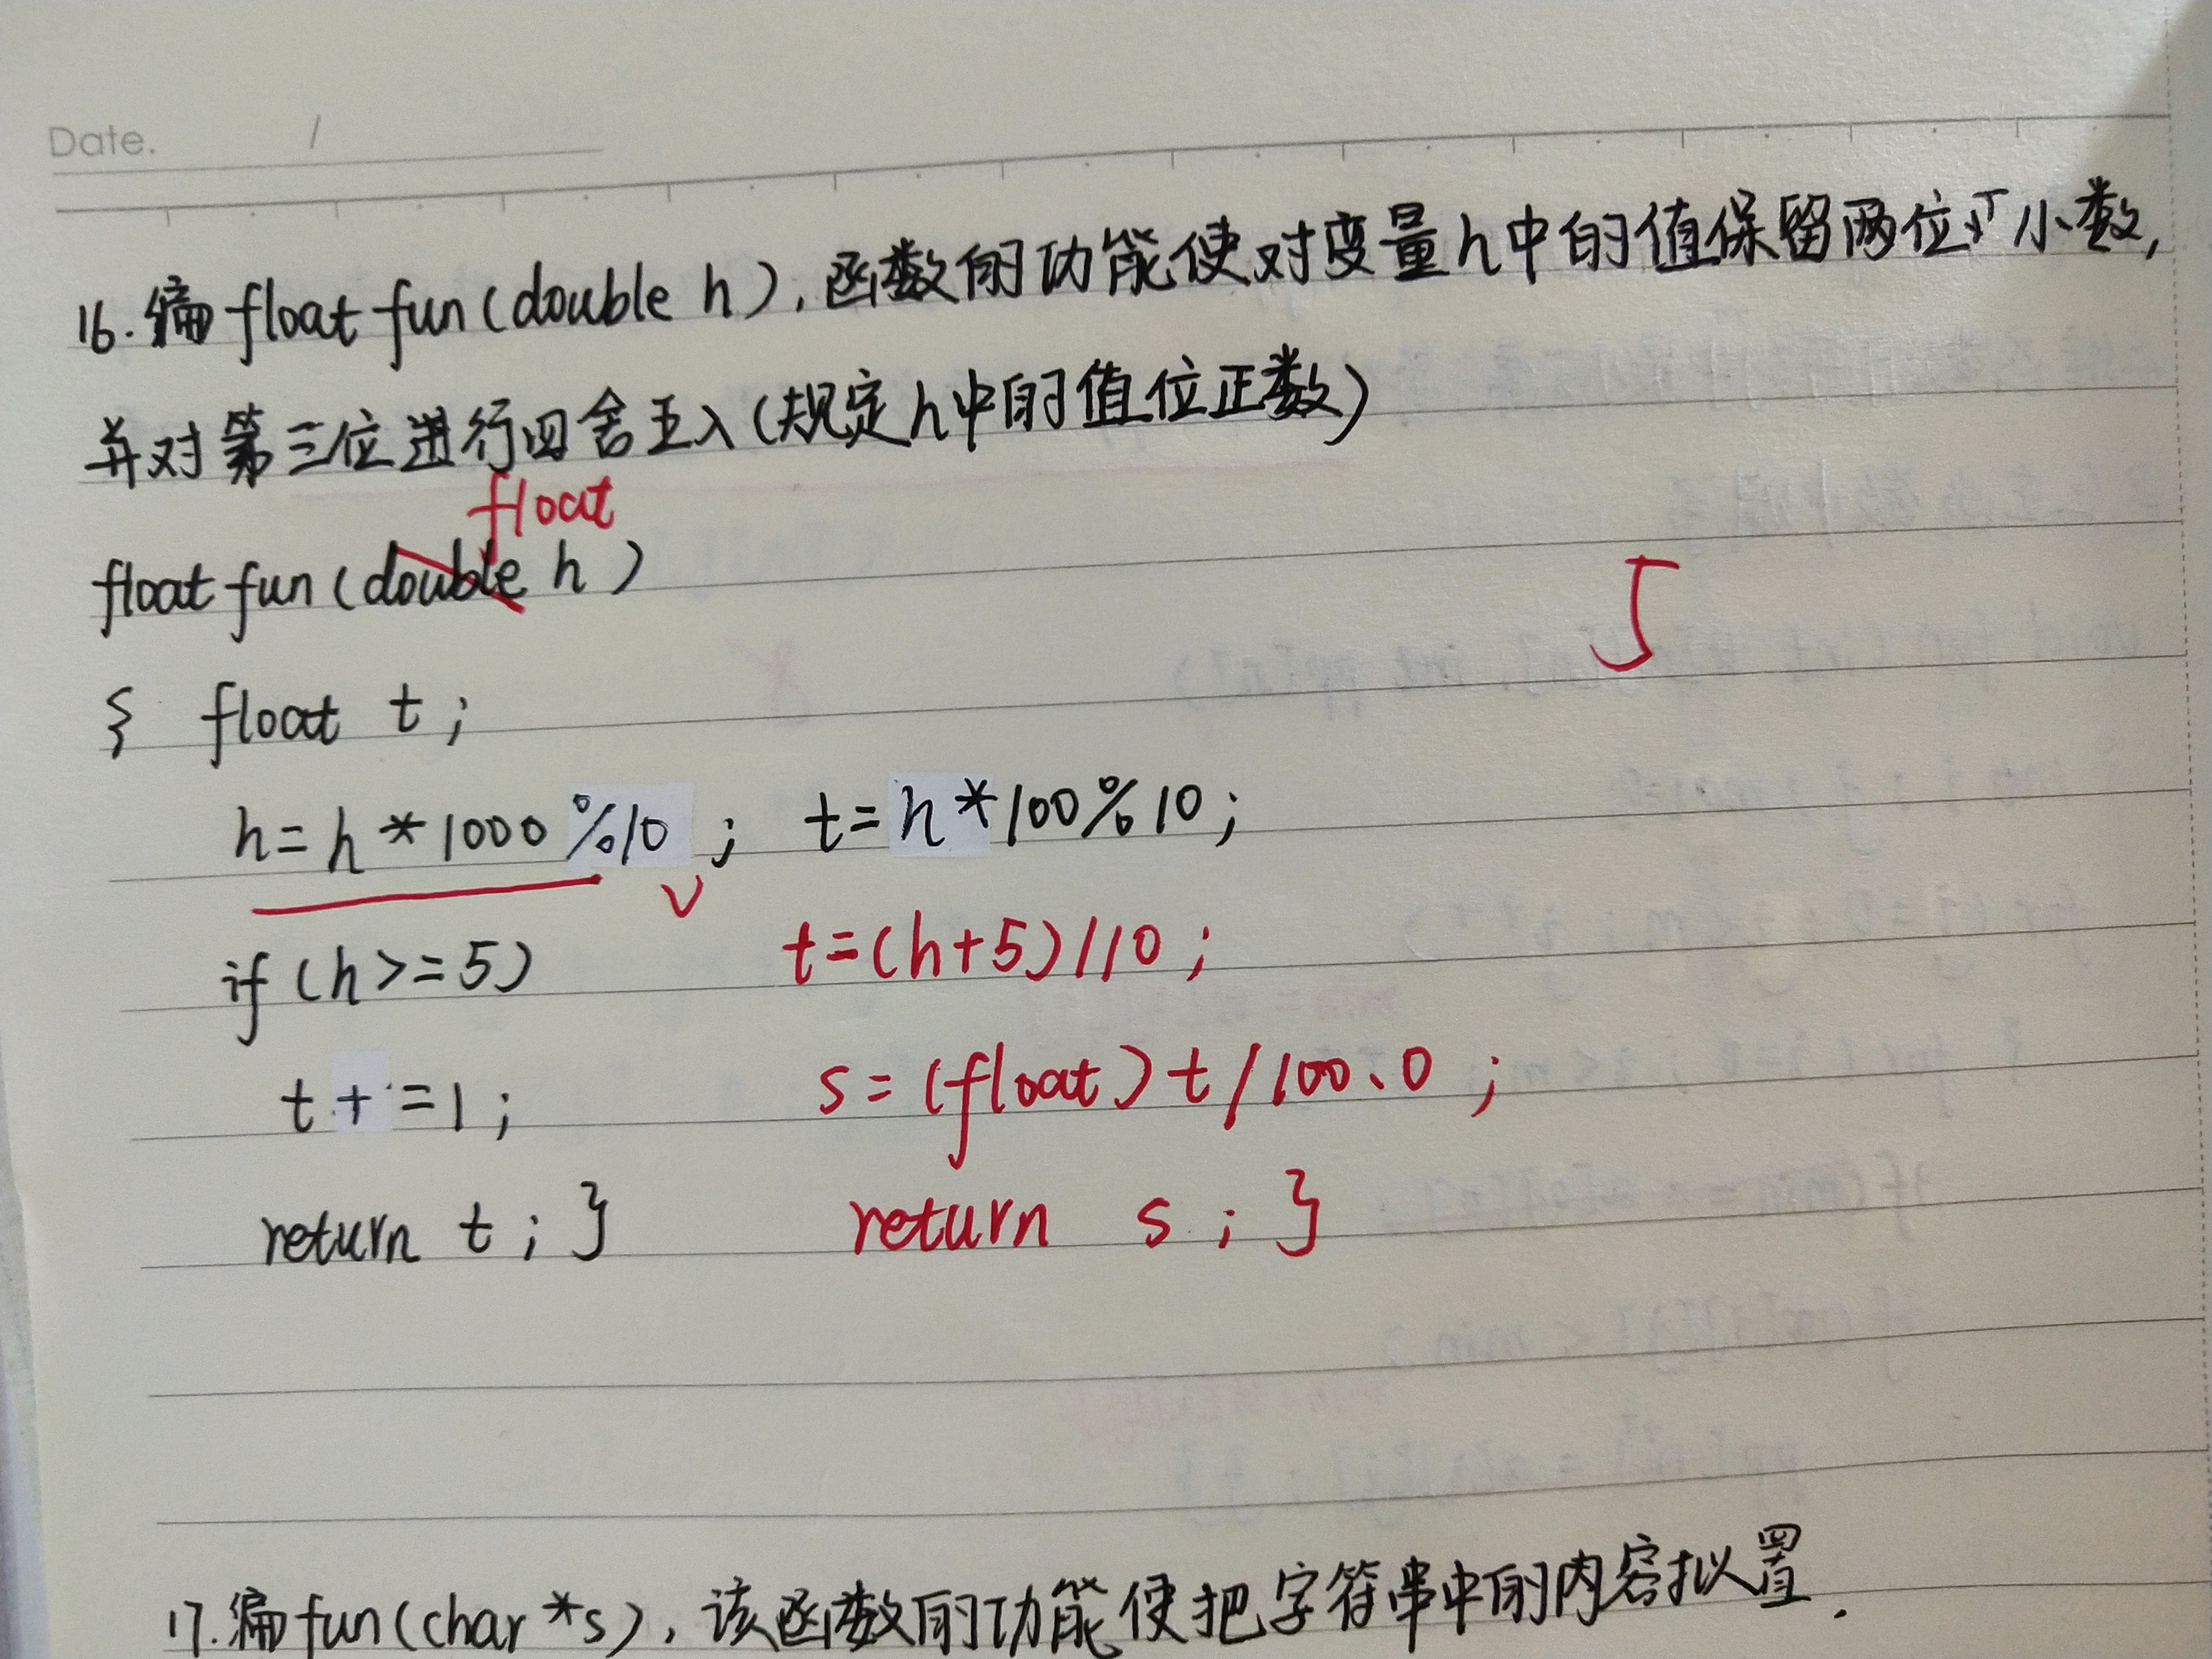 Date. /
16. 编 float fun(double h), 函数的功能使对变量h中的值保留两位小数,
并对第三位进行四舍五入(规定h中的值位正数)
float
float fun(double h)
5
{ float t;
h=h*1000%10; t=h*100%10;
if(h>=5) t=(h+5)/10;
t+=1; s=(float)t/100.0;
return t;} return s;}
17. 编 fun(char *s), 该函数的功能使把字符串中的内容拟置.